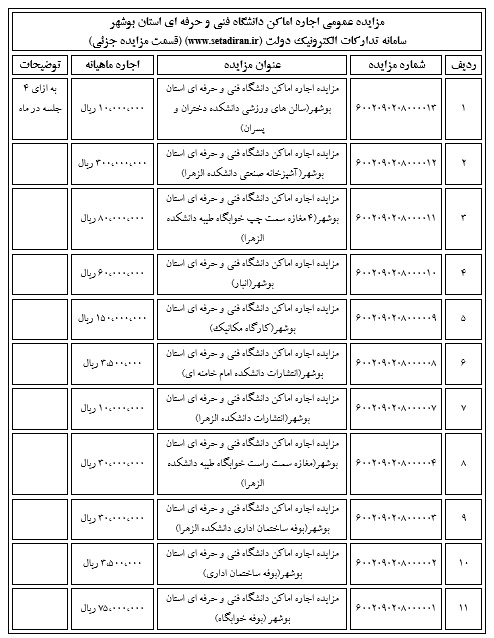 مزایده عمومی اجاره اماکن دانشگاه فنی و حرفه ای استان بوشهر
سامانه تدارکات الکترونیک دولت (www.setadiran.ir) (قسمت مزایده جزئی)
ردیف شماره مزایده عنوان مزایده اجاره ماهیانه توضیحات
۱ ۶۰۰۲۰۹۰۲۰۸۰۰۰۰۱۳ مزایده اجاره اماکن دانشگاه فنی و حرفه ای استان بوشهر(سالن های ورزشی دانشکده دختران و پسران) ۱۰،۰۰۰،۰۰۰ ریال به ازای ۴ جلسه در ماه
۲ ۶۰۰۲۰۹۰۲۰۸۰۰۰۰۱۲ مزایده اجاره اماکن دانشگاه فنی و حرفه ای استان بوشهر(آشپزخانه صنعتی دانشکده الزهرا) ۳۰۰،۰۰۰،۰۰۰ ریال
۳ ۶۰۰۲۰۹۰۲۰۸۰۰۰۰۱۱ مزایده اجاره اماکن دانشگاه فنی و حرفه ای استان بوشهر(۴ مغازه سمت چپ خوابگاه طیبه دانشکده الزهرا) ۸۰،۰۰۰،۰۰۰ ریال
۴ ۶۰۰۲۰۹۰۲۰۸۰۰۰۰۱۰ مزایده اجاره اماکن دانشگاه فنی و حرفه ای استان بوشهر(انبار) ۶۰،۰۰۰،۰۰۰ ریال
۵ ۶۰۰۲۰۹۰۲۰۸۰۰۰۰۰۹ مزایده اجاره اماکن دانشگاه فنی و حرفه ای استان بوشهر(کارگاه مکانیک) ۱۵۰،۰۰۰،۰۰۰ ریال
۶ ۶۰۰۲۰۹۰۲۰۸۰۰۰۰۰۸ مزایده اجاره اماکن دانشگاه فنی و حرفه ای استان بوشهر(انتشارات دانشکده امام خامنه ای) ۳،۵۰۰،۰۰۰ ریال
۷ ۶۰۰۲۰۹۰۲۰۸۰۰۰۰۰۷ مزایده اجاره اماکن دانشگاه فنی و حرفه ای استان بوشهر(انتشارات دانشکده الزهرا) ۱۰،۰۰۰،۰۰۰ ریال
۸ ۶۰۰۲۰۹۰۲۰۸۰۰۰۰۰۴ مزایده اجاره اماکن دانشگاه فنی و حرفه ای استان بوشهر(مغازه سمت راست خوابگاه طیبه دانشکده الزهرا) ۳۰،۰۰۰،۰۰۰ ریال
۹ ۶۰۰۲۰۹۰۲۰۸۰۰۰۰۰۳ مزایده اجاره اماکن دانشگاه فنی و حرفه ای استان بوشهر(بوفه ساختمان اداری دانشکده الزهرا) ۳۰،۰۰۰،۰۰۰ ریال
۱۰ ۶۰۰۲۰۹۰۲۰۸۰۰۰۰۰۲ مزایده اجاره اماکن دانشگاه فنی و حرفه ای استان بوشهر(بوفه ساختمان اداری) ۳،۵۰۰،۰۰۰ ریال
۱۱ ۶۰۰۲۰۹۰۲۰۸۰۰۰۰۰۱ مزایده اجاره اماکن دانشگاه فنی و حرفه ای استان بوشهر (بوفه خوابگاه) ۷۵،۰۰۰،۰۰۰ ریال